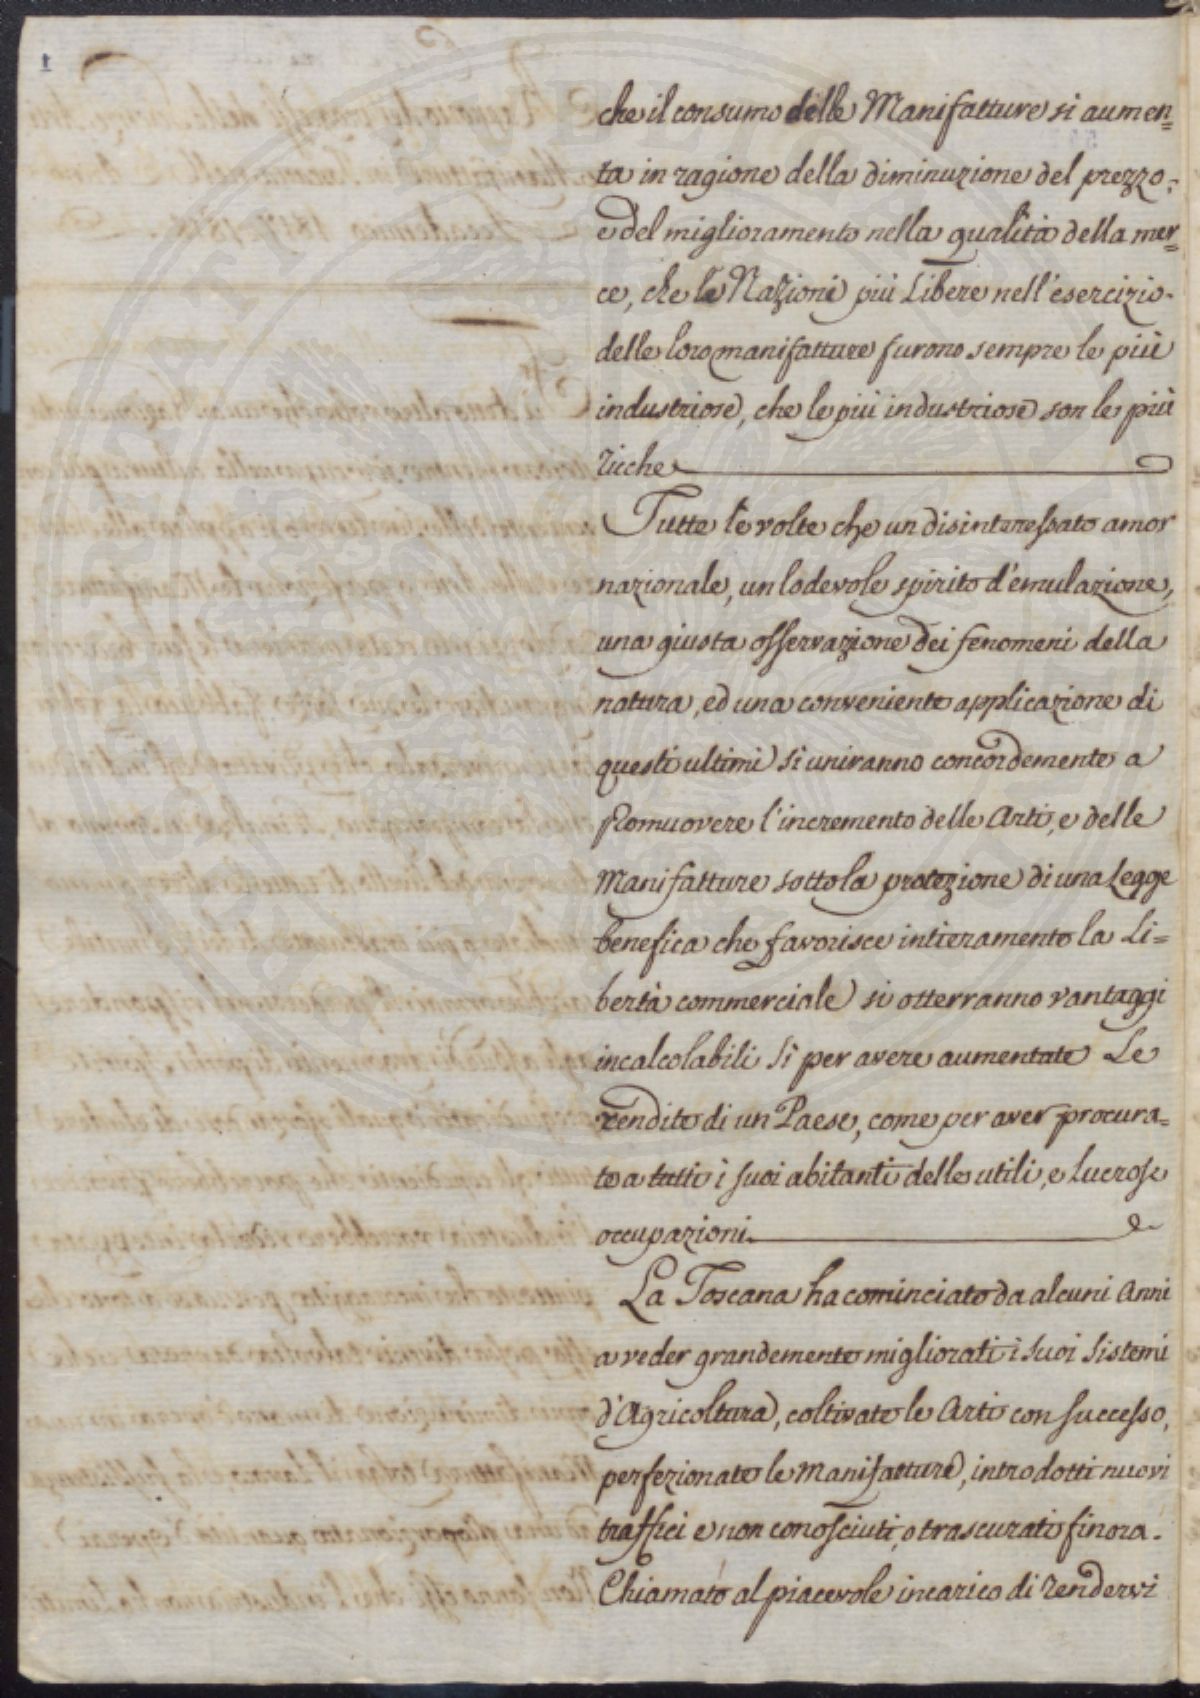 1
che il consumo delle Manifatture si aumen=
ta in ragione della diminuzione del prezzo,
e del miglioramento nella qualità della mer=
ce, che le Nazioni più Libere nell'esercizio
delle loro manifatture furono sempre le più
industriose, che le più industriose son le più
ricche
Tutte le volte che un disinteressato amor
nazionale, un lodevole spirito d'emulazione,
una giusta osservazione dei fenomeni della
natura, ed una conveniente applicazione di
questi ultimi si uniranno concordemente a
Promuovere l'incremento delle Arti, e delle
Manifatture sotto la protezione di una Legge
benefica che favorisce intieramente la Li=
bertà commerciale si otterranno vantaggi
incalcolabili sì per avere aumentate Le
rendite di un Paese, come per aver procura=
to a tutti i suoi abitanti delle utili, e lucrose
occupazioni.
La Toscana ha cominciato da alcuni Anni
a veder grandemente migliorati i suoi sistemi
d'Agricoltura, coltivate le Arti con successo,
perfezionate le Manifatture, introdotti nuovi
traffici e non conosciuti, o trascurati finora.
Chiamato al piacevole incarico di rendervi